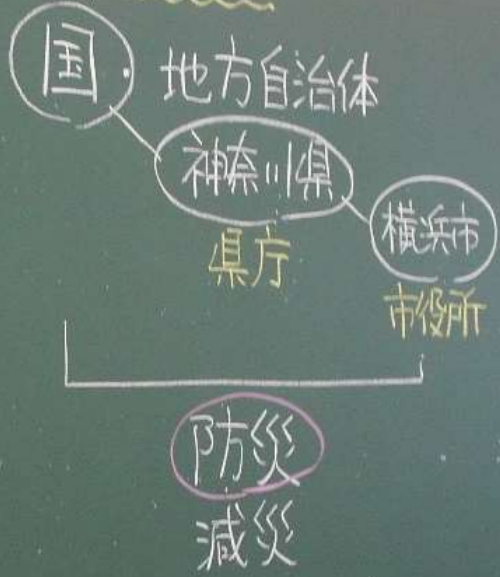 国・地方自治体
神奈川県
横浜市
県庁
市役所
防災
減災